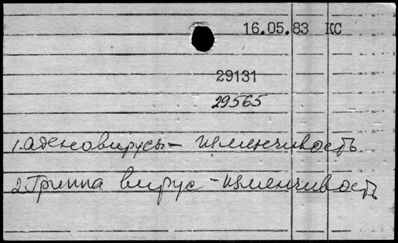 16.05.83 КС
29131
29565
1. аденовирусы – изменчивость
2. Гриппа вирус – изменчивость